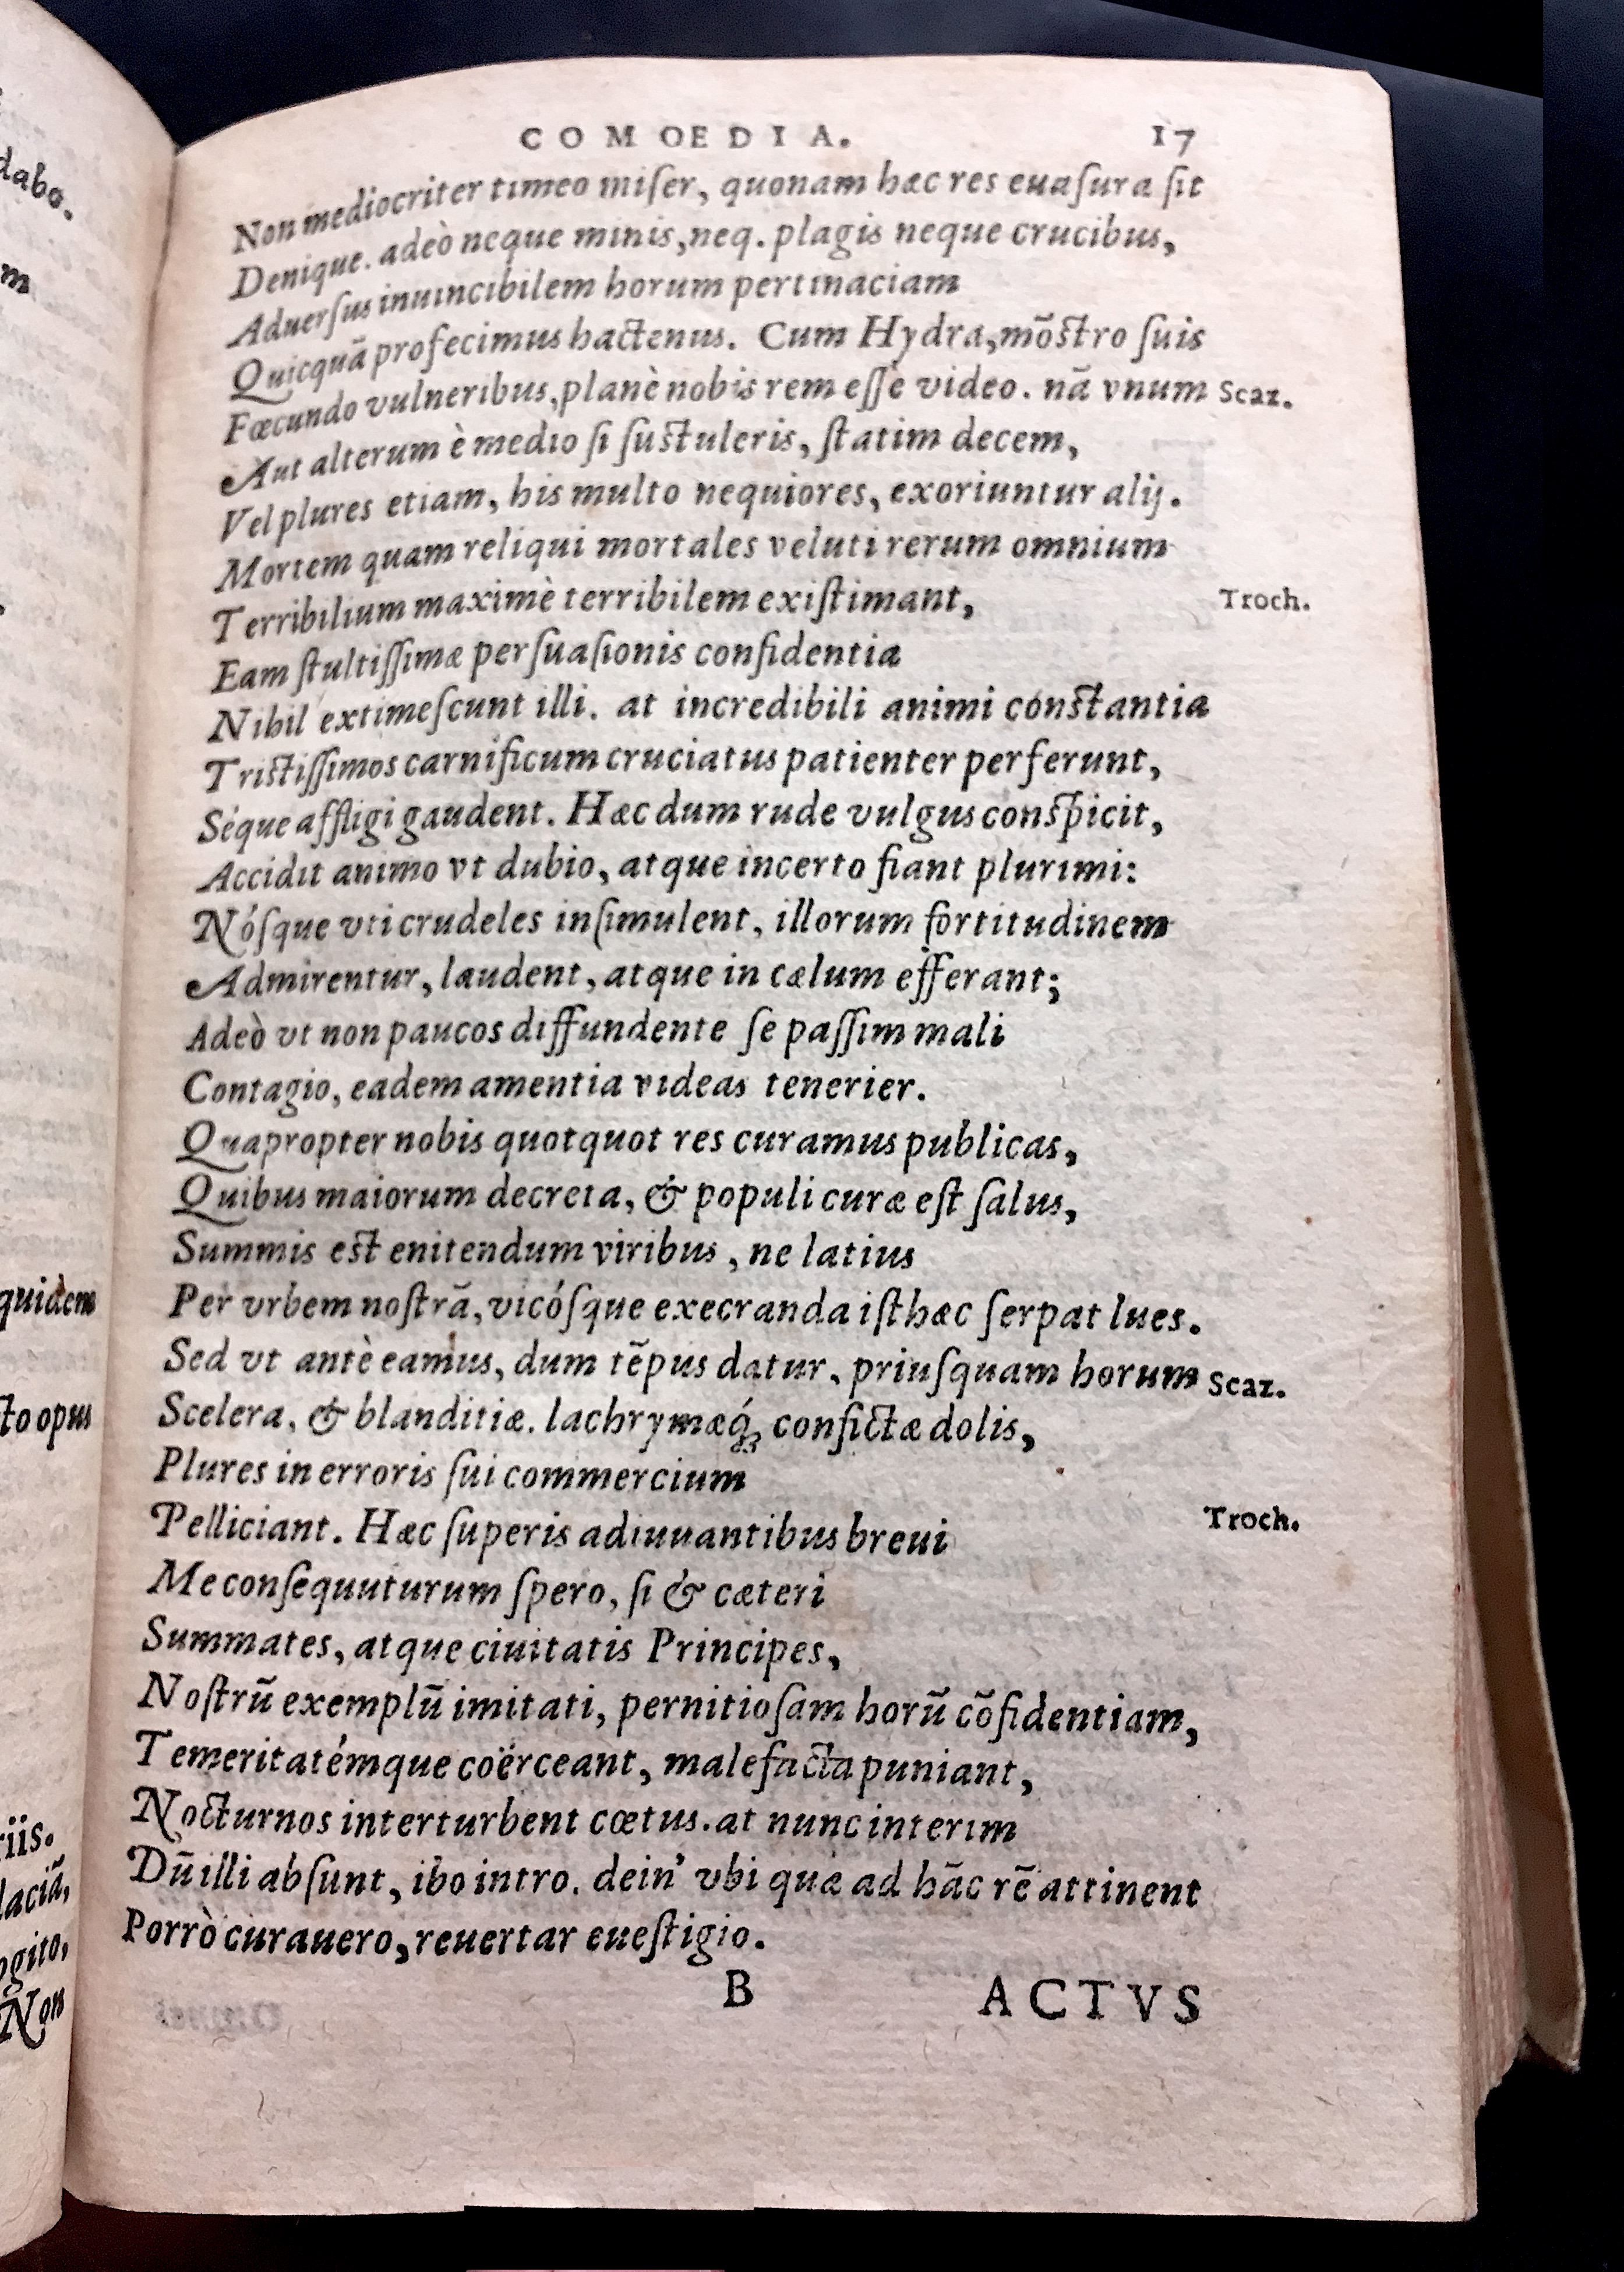 COMOEDIA. 17
Non mediocriter timeo miſer, quonam hæc res euaſura ſit
Denique. adeò neque minis, neq. plagis neque crucibus,
Aduerſus inuincibilem horum pertinaciam
Quicquā profecimus hactenus. Cum Hydra, mōſtro ſuis
Fœcundo vulneribus, planè nobis rem eſſe video. nā vnum Scaz.
Aut alterum è medio ſi ſuſtuleris, ſtatim decem,
Vel plures etiam, his multo nequiores, exoriuntur alij.
Mortem quam reliqui mortales veluti rerum omnium
Terribilium maximè terribilem exiſtimant, Troch.
Eam ſtultiſſimæ perſuaſionis confidentia
Nihil extimeſcunt illi. at incredibili animi conſtantia
Triſtiſſimos carnificum cruciatus patienter perferunt,
Séque affligi gaudent. Hæc dum rude vulgus conſpicit,
Accidit animo vt dubio, atque incerto fiant plurimi:
Nóſque vti crudeles inſimulent, illorum fortitudinem
Admirentur, laudent, atque in cælum efferant;
Adeò vt non paucos diffundente ſe paſſim mali
Contagio, eadem amentia videas tenerier.
Quapropter nobis quotquot res curamus publicas,
Quibus maiorum decreta, & populi curæ eſt ſalus,
Summis eſt enitendum viribus, ne latius
Per vrbem noſtrā, vicóſque execranda iſthæc ſerpat lues.
Sed vt antè eamus, dum tēpus datur, priuſquam horum Scaz.
Scelera, & blanditiæ. lachrymæq́; confictæ dolis,
Plures in erroris ſui commercium
Pelliciant. Hæc ſuperis adiuuantibus breui Troch.
Me conſequuturum ſpero, ſi & cæteri
Summates, atque ciuitatis Principes,
Noſtrū exemplū imitati, pernitioſam horū cōfidentiam,
Temeritatémque coërceant, malefacta puniant,
Nocturnos interturbent cœtus. at nunc interim
Dū illi abſunt, ibo intro. dein' vbi quæ ad hāc rē attinent
Porrò curauero, reuertar eueſtigio.
B ACTVS
dabo.
m
quidem
to opus
riis.
laciā,
ogito,
Non